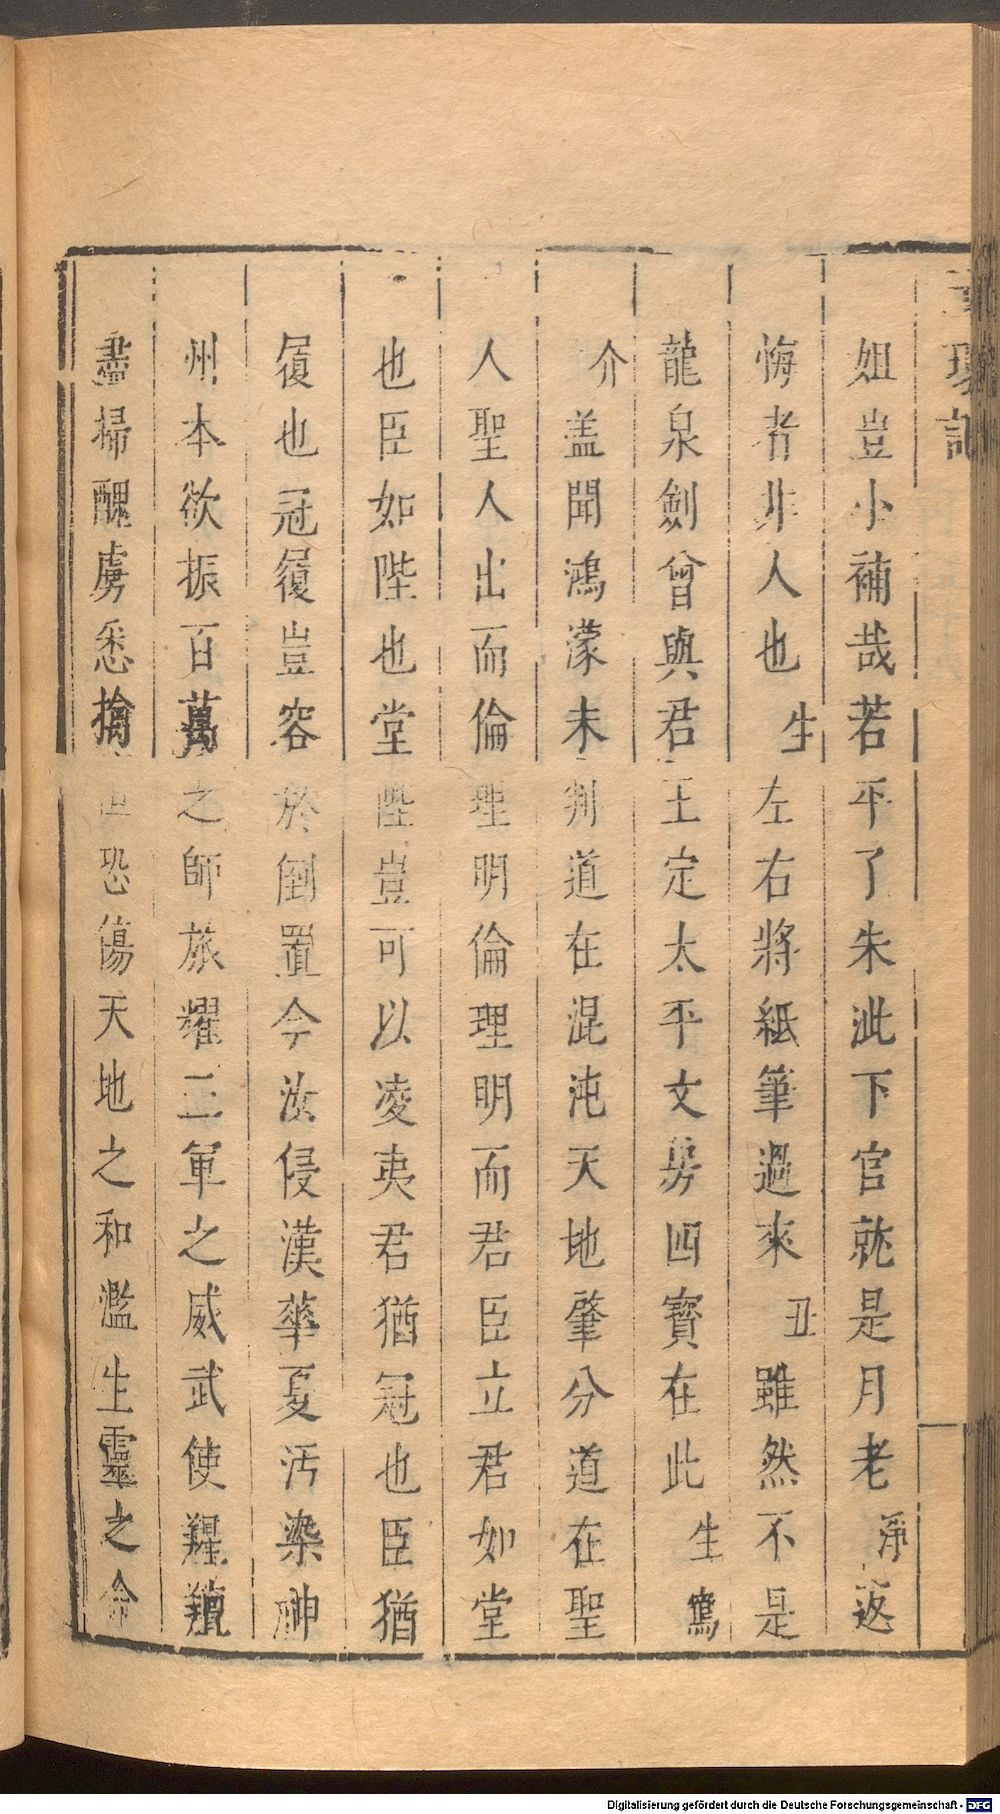 姐豈小補哉若平了朱泚下官就是月老 淨 返
悔者非人也 生 左右將紙筆過來 丑 雖然不是
龍泉劍曾與君王定太平文房四寶在此 生 寫
介 盖聞鴻濛未判道在混沌天地肇分道在聖
人聖人出而倫理明倫理明而君臣立君如堂
也臣如陛也堂陛豈可以凌夷君猶冠也臣猶
履也冠履豈容於倒置今汝侵漢華夏汚染神
州本欲振百萬之師旅耀三軍之威武使羶
盡掃醜虜悉擒恐傷天地之和濫生靈之命
Digitalisierung gefördert durch die Deutsche Forschungsgemeinschaft - DFG